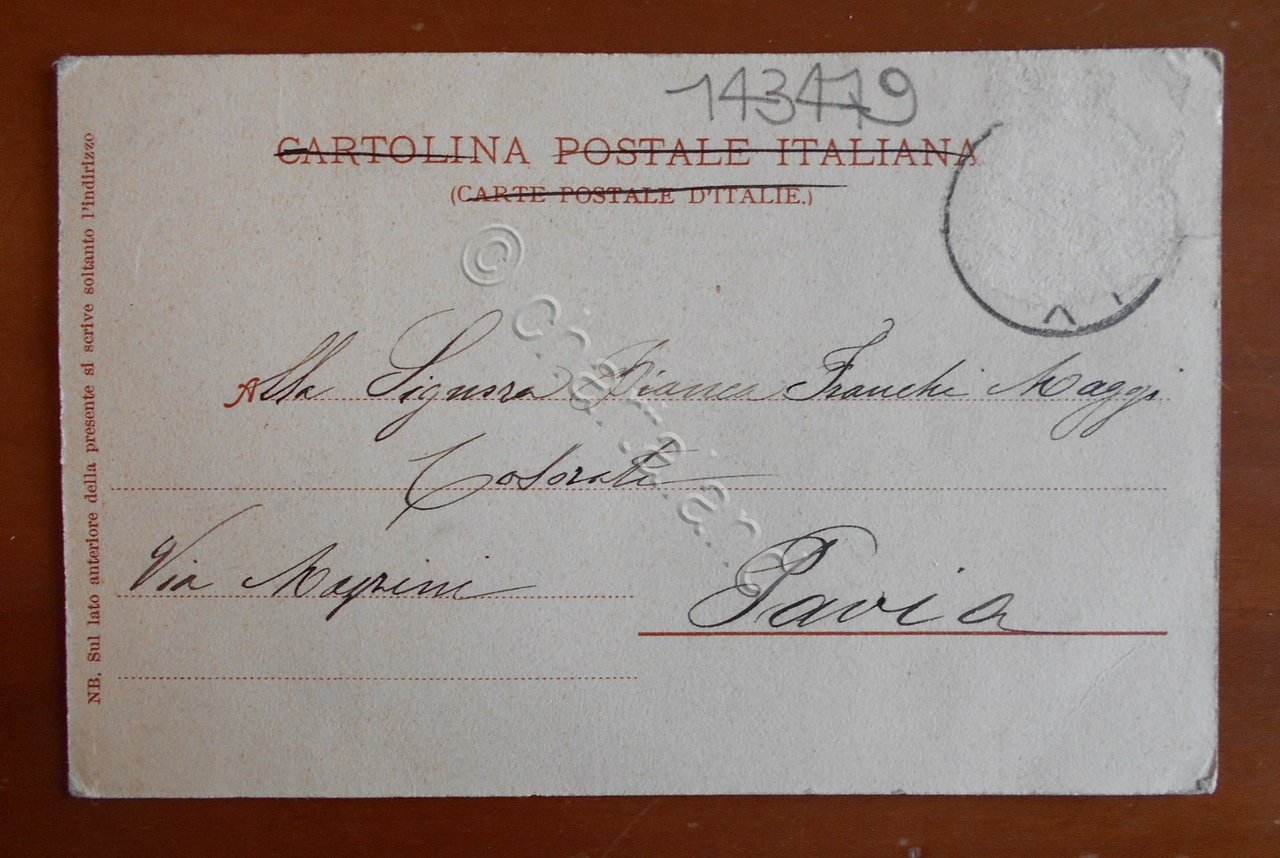 143479
CARTOLINA POSTALE ITALIANA
(CARTE POSTALE D'ITALIE.)
NB. Sul lato anteriore della presente si scrive soltanto l'indirizzo
Alla Signora Bianca Franchi Maggi
Via
Pavia
©